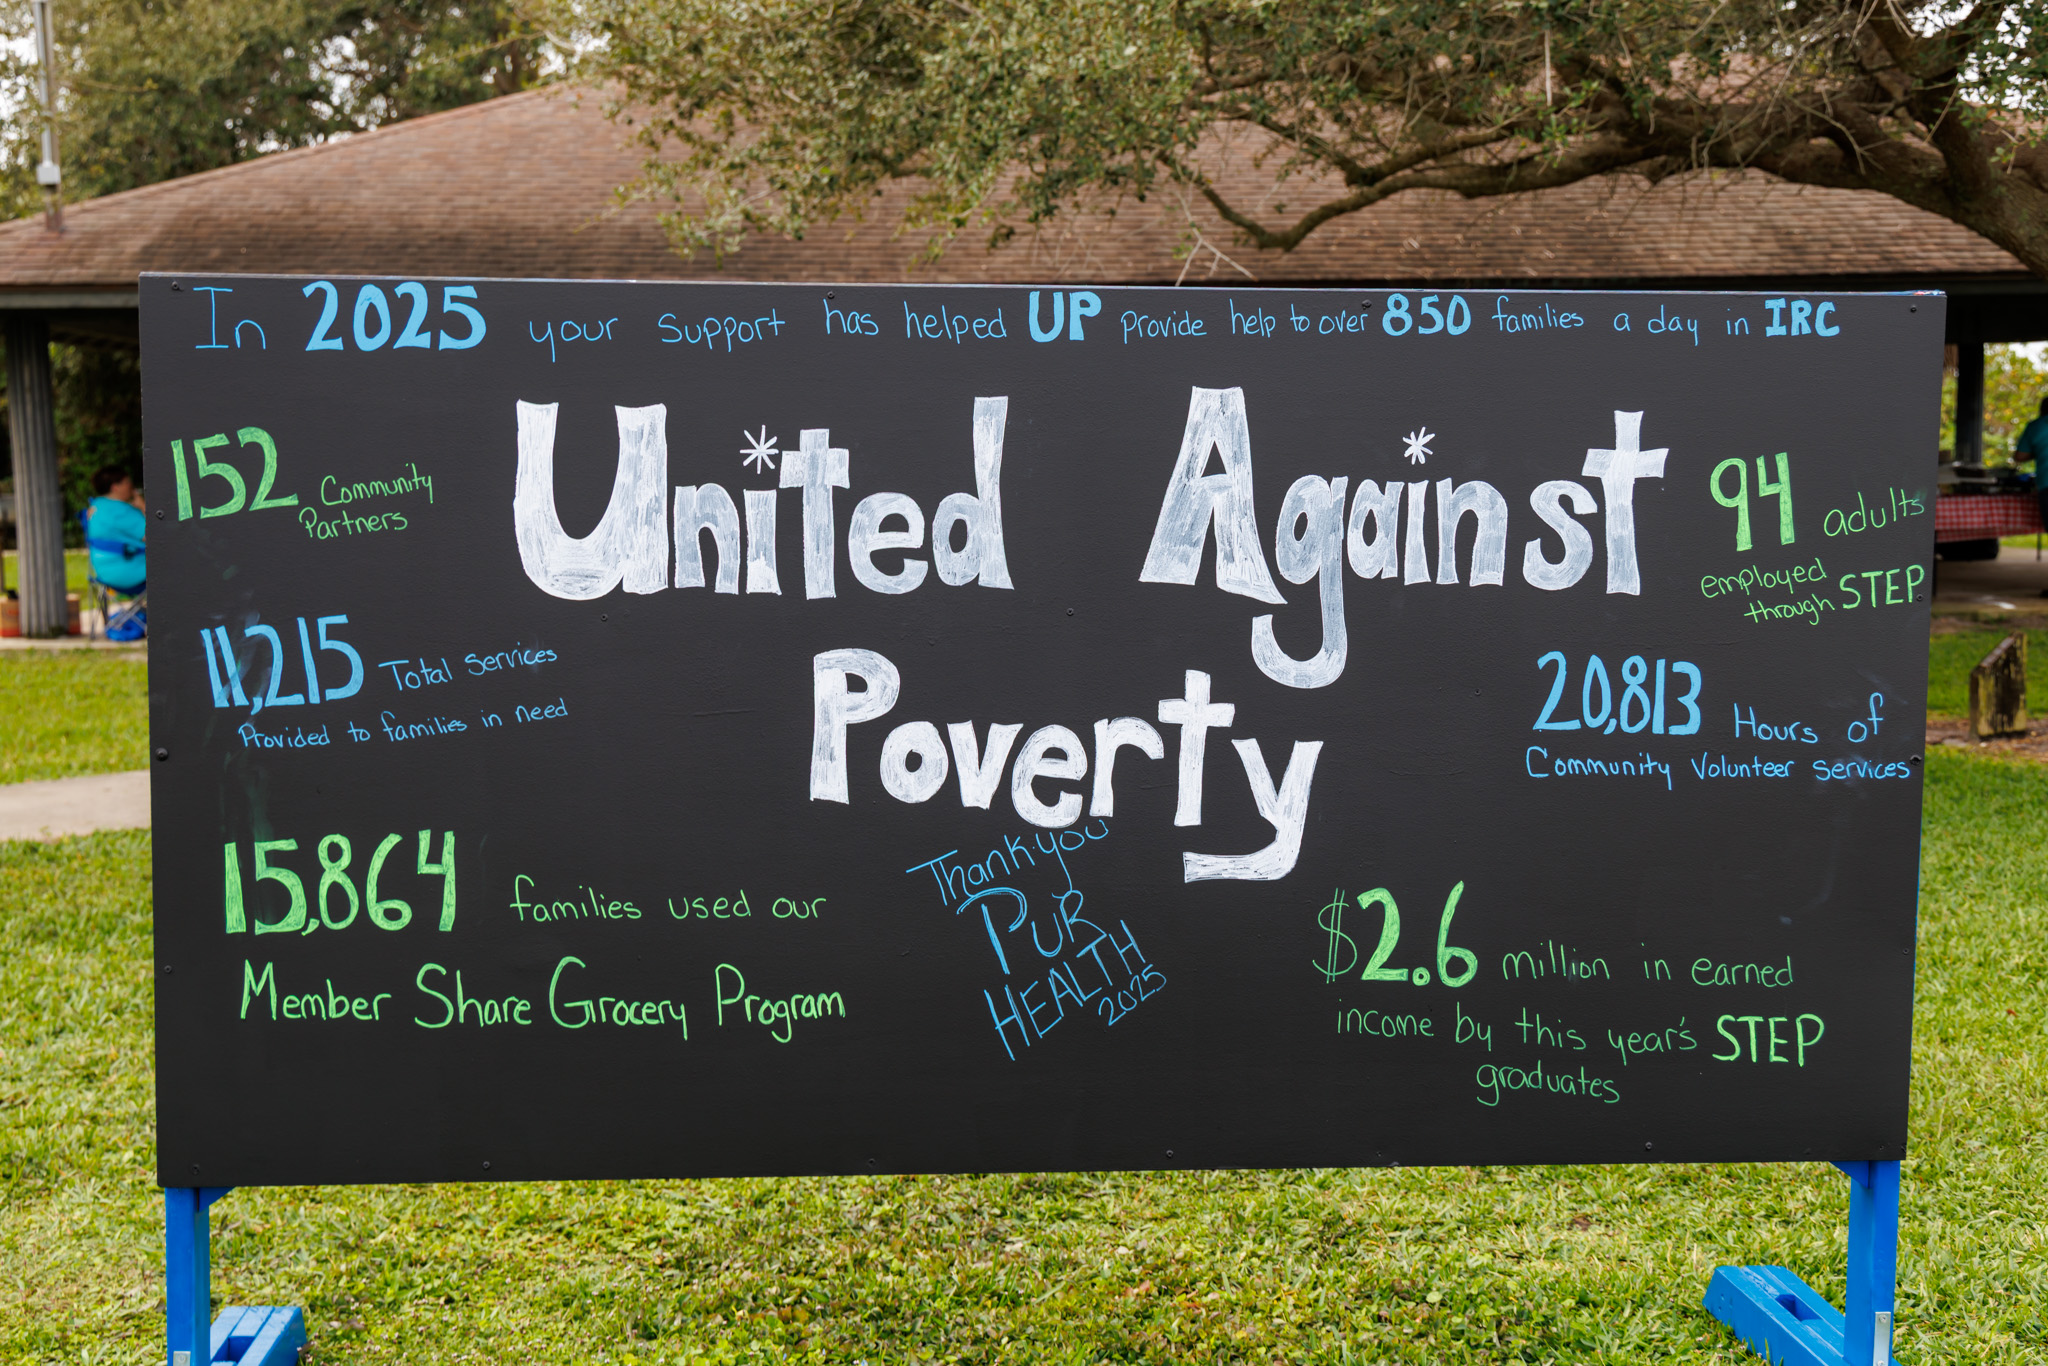 In 2025 your support has helped UP provide help to over 850 families a day in IRC
United Against
Poverty
152 Community
Partners
11,215 Total services
Provided to families in need
15,864 families used our
Member Share Grocery Program
Thank you
PUR
HEALTH
2025
94 adults
employed
through STEP
20,813 Hours of
Community Volunteer services
$2.6 million in earned
income by this year's STEP
graduates